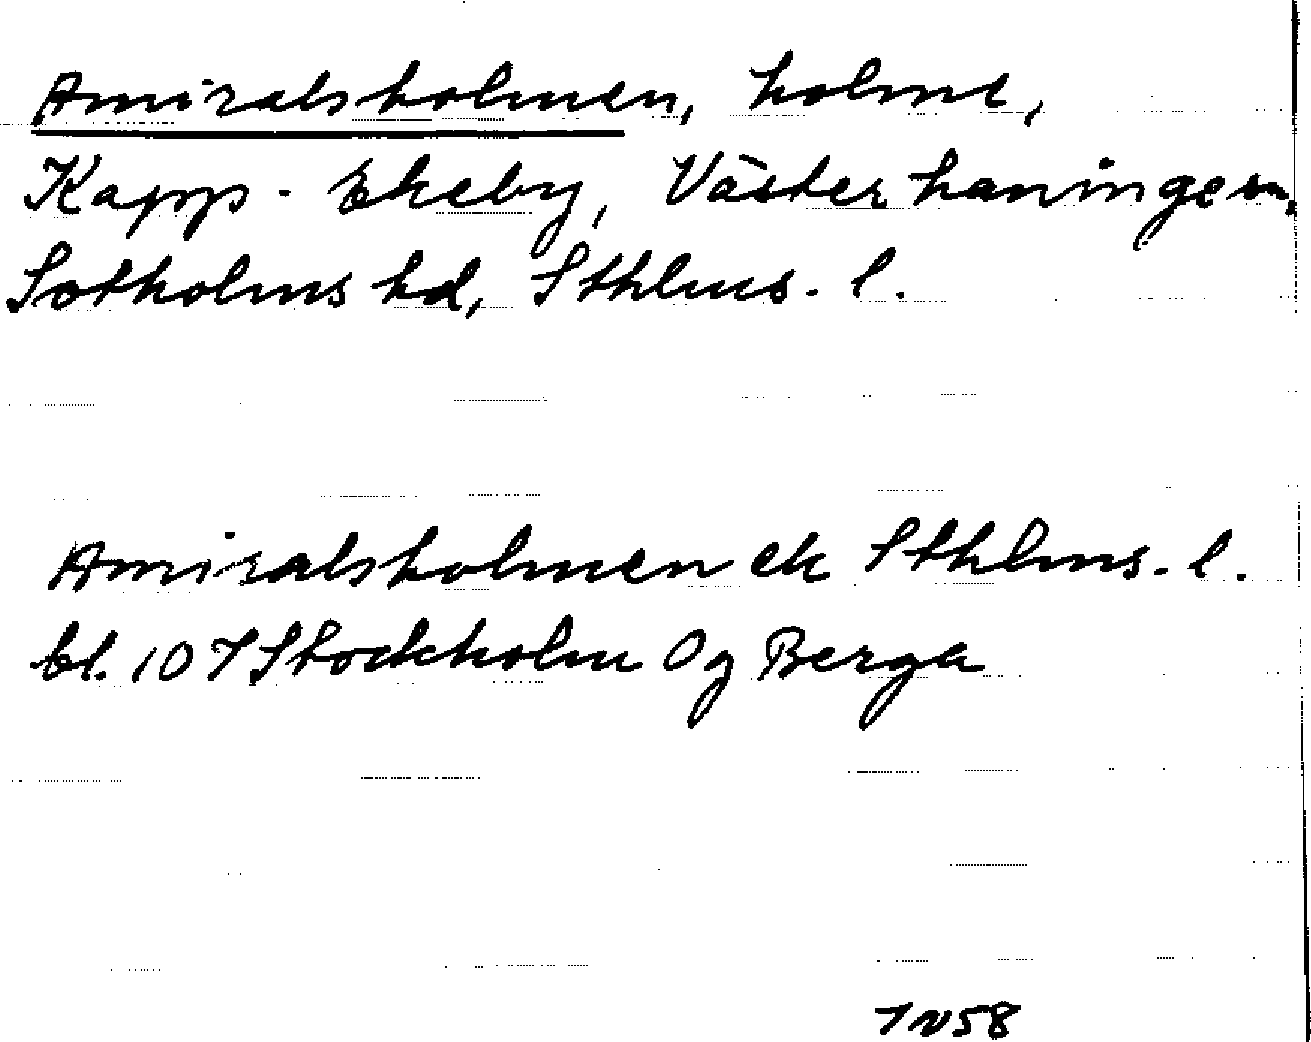 Amiralsholmen, holme,
Kapp-Ekeby, Västerhaninge sn,
Sotholms hd, Sthlms. l.
Amiralsholmen ek Sthlms. l.
bl. 107 Stockholm Og Berga
1958